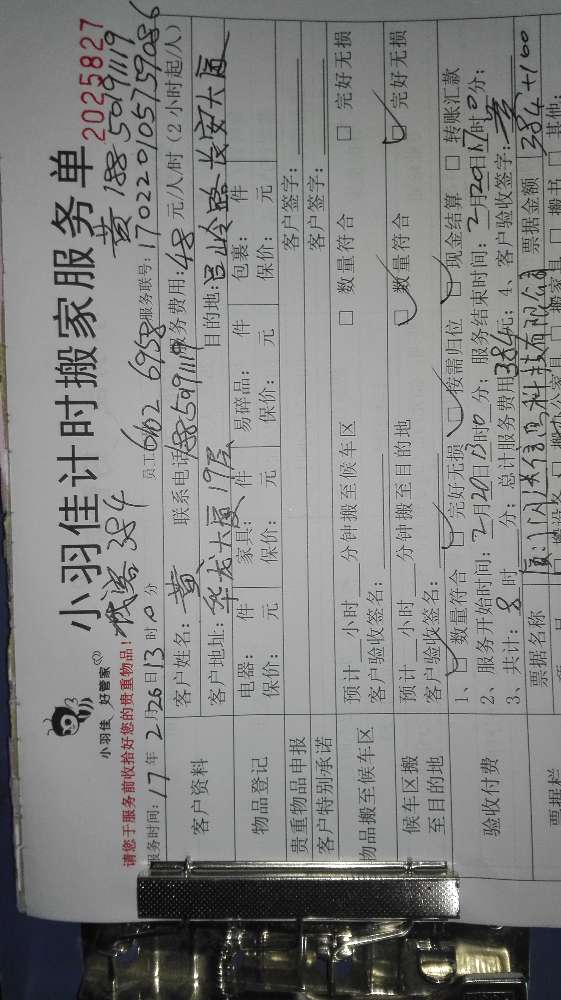 小羽佳 好管家
小羽佳计时搬家服务单
2025827
请您于服务前收拾好您的贵重物品!
384
黄 18850991119
服务时间: 17 年 2 月 26 日 13 时 0 分
员工 6102 6958
服务联号: 170220105759086
客户资料
客户姓名: 黄
联系电话: 18850991119
服务费用: 48 元/人/时 (2小时起/人)
客户地址: 华龙大厦 19层
目的地: 吕岭路 长安大厦
物品登记
电器: 件 家具: 件 易碎品: 件 包裹: 件
保价: 元 保价: 元 保价: 元 保价: 元
贵重物品申报 客户签字:
客户特别承诺 客户签字:
物品搬至候车区
预计 小时 分钟搬至候车区 □ 数量符合 □ 完好无损
客户验收签名:
候车区搬至目的地
预计 小时 分钟搬至目的地 ☑ 数量符合 ☑ 完好无损
客户验收签名:
验收付费
1、☑ 数量符合 ☑ 完好无损 ☑ 按需归位 ☑ 现金结算 □ 转账汇款
2、服务开始时间: 2 月 20 日 13 时 0 分; 服务结束时间: 2 月 20 日 17 时 0 分;
3、共计: 8 时 分; 总计服务费用 384 元; 4、客户验收签字: 黄
票据栏
票据名称 厦门闪送信息科技有限公司 票据金额 384+100
□ 搬设备 □ 搬办公家具 □ 搬家具 □ 搬书 □ 其他: